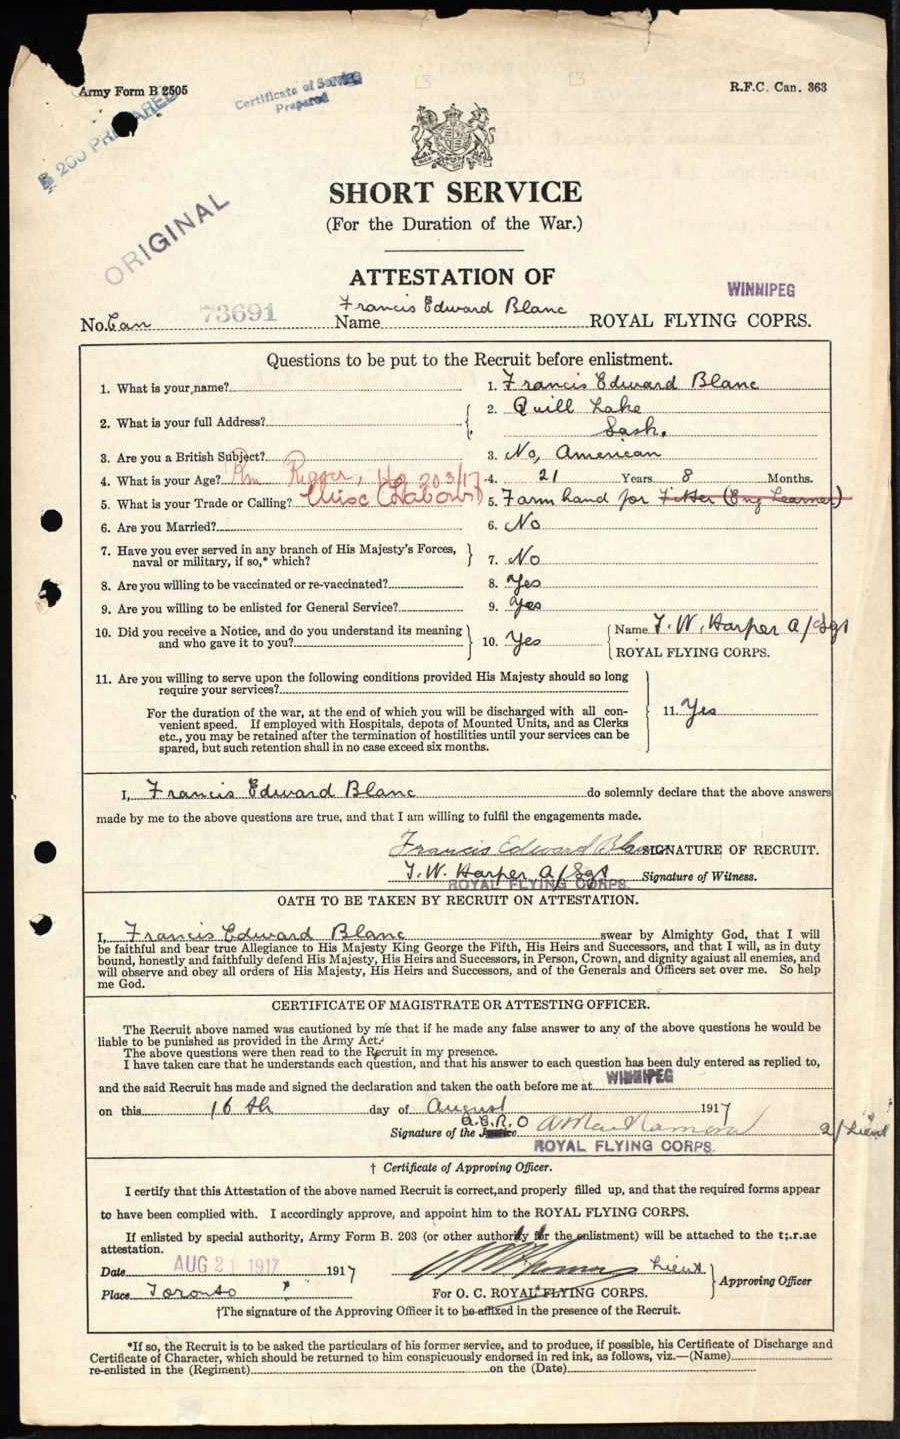 Army Form B 2505
R.F.C. Can. 363
B 260 PREPARED
Certificate of Service
Prepared
ORIGINAL
SHORT SERVICE
(For the Duration of the War.)
ATTESTATION OF
WINNIPEG
No. Can 73691 Name Francis Edward Blanc ROYAL FLYING COPRS.
Questions to be put to the Recruit before enlistment.
1. What is your name? 1. Francis Edward Blanc
2. What is your full Address? 2. Quill Lake
Sask.
3. Are you a British Subject? 3. No, American
4. What is your Age? Rigger, 203/17 4. 21 Years 8 Months.
5. What is your Trade or Calling? Misc (Labour) 5. Farm hand for Fitter (Eng Learner)
6. Are you Married? 6. No
7. Have you ever served in any branch of His Majesty's Forces,
naval or military, if so,* which? 7. No
8. Are you willing to be vaccinated or re-vaccinated? 8. Yes
9. Are you willing to be enlisted for General Service? 9. Yes
10. Did you receive a Notice, and do you understand its meaning
and who gave it to you? 10. Yes Name T. W. Harper A/Sgt
ROYAL FLYING CORPS.
11. Are you willing to serve upon the following conditions provided His Majesty should so long
require your services?
For the duration of the war, at the end of which you will be discharged with all con-
venient speed. If employed with Hospitals, depots of Mounted Units, and as Clerks
etc., you may be retained after the termination of hostilities until your services can be
spared, but such retention shall in no case exceed six months.
11. Yes
I, Francis Edward Blanc do solemnly declare that the above answers
made by me to the above questions are true, and that I am willing to fulfil the engagements made.
Francis Edward Blanc SIGNATURE OF RECRUIT.
T. W. Harper A/Sgt Signature of Witness.
ROYAL FLYING CORPS.
OATH TO BE TAKEN BY RECRUIT ON ATTESTATION.
I, Francis Edward Blanc swear by Almighty God, that I will
be faithful and bear true Allegiance to His Majesty King George the Fifth, His Heirs and Successors, and that I will, as in duty
bound, honestly and faithfully defend His Majesty, His Heirs and Successors, in Person, Crown, and dignity agaiust all enemies, and
will observe and obey all orders of His Majesty, His Heirs and Successors, and of the Generals and Officers set over me. So help
me God.
CERTIFICATE OF MAGISTRATE OR ATTESTING OFFICER.
The Recruit above named was cautioned by me that if he made any false answer to any of the above questions he would be
liable to be punished as provided in the Army Act.
The above questions were then read to the Recruit in my presence.
I have taken care that he understands each question, and that his answer to each question has been duly entered as replied to,
and the said Recruit has made and signed the declaration and taken the oath before me at WINNIPEG
on this 16th day of August 1917
A.C.R.O
Signature of the Justice 2/Lieut
ROYAL FLYING CORPS.
† Certificate of Approving Officer.
I certify that this Attestation of the above named Recruit is correct,and properly filled up, and that the required forms appear
to have been complied with. I accordingly approve, and appoint him to the ROYAL FLYING CORPS.
If enlisted by special authority, Army Form B. 203 (or other authority for the enlistment) will be attached to the t;.r.ae
attestation.
Date AUG 21 1917 1917 Lieut
Approving Officer
Place Toronto For O. C. ROYAL FLYING CORPS.
†The signature of the Approving Officer it to be affixed in the presence of the Recruit.
*If so, the Recruit is to be asked the particulars of his former service, and to produce, if possible, his Certificate of Discharge and
Certificate of Character, which should be returned to him conspicuously endorsed in red ink, as follows, viz.—(Name)
re-enlisted in the (Regiment) on the (Date)